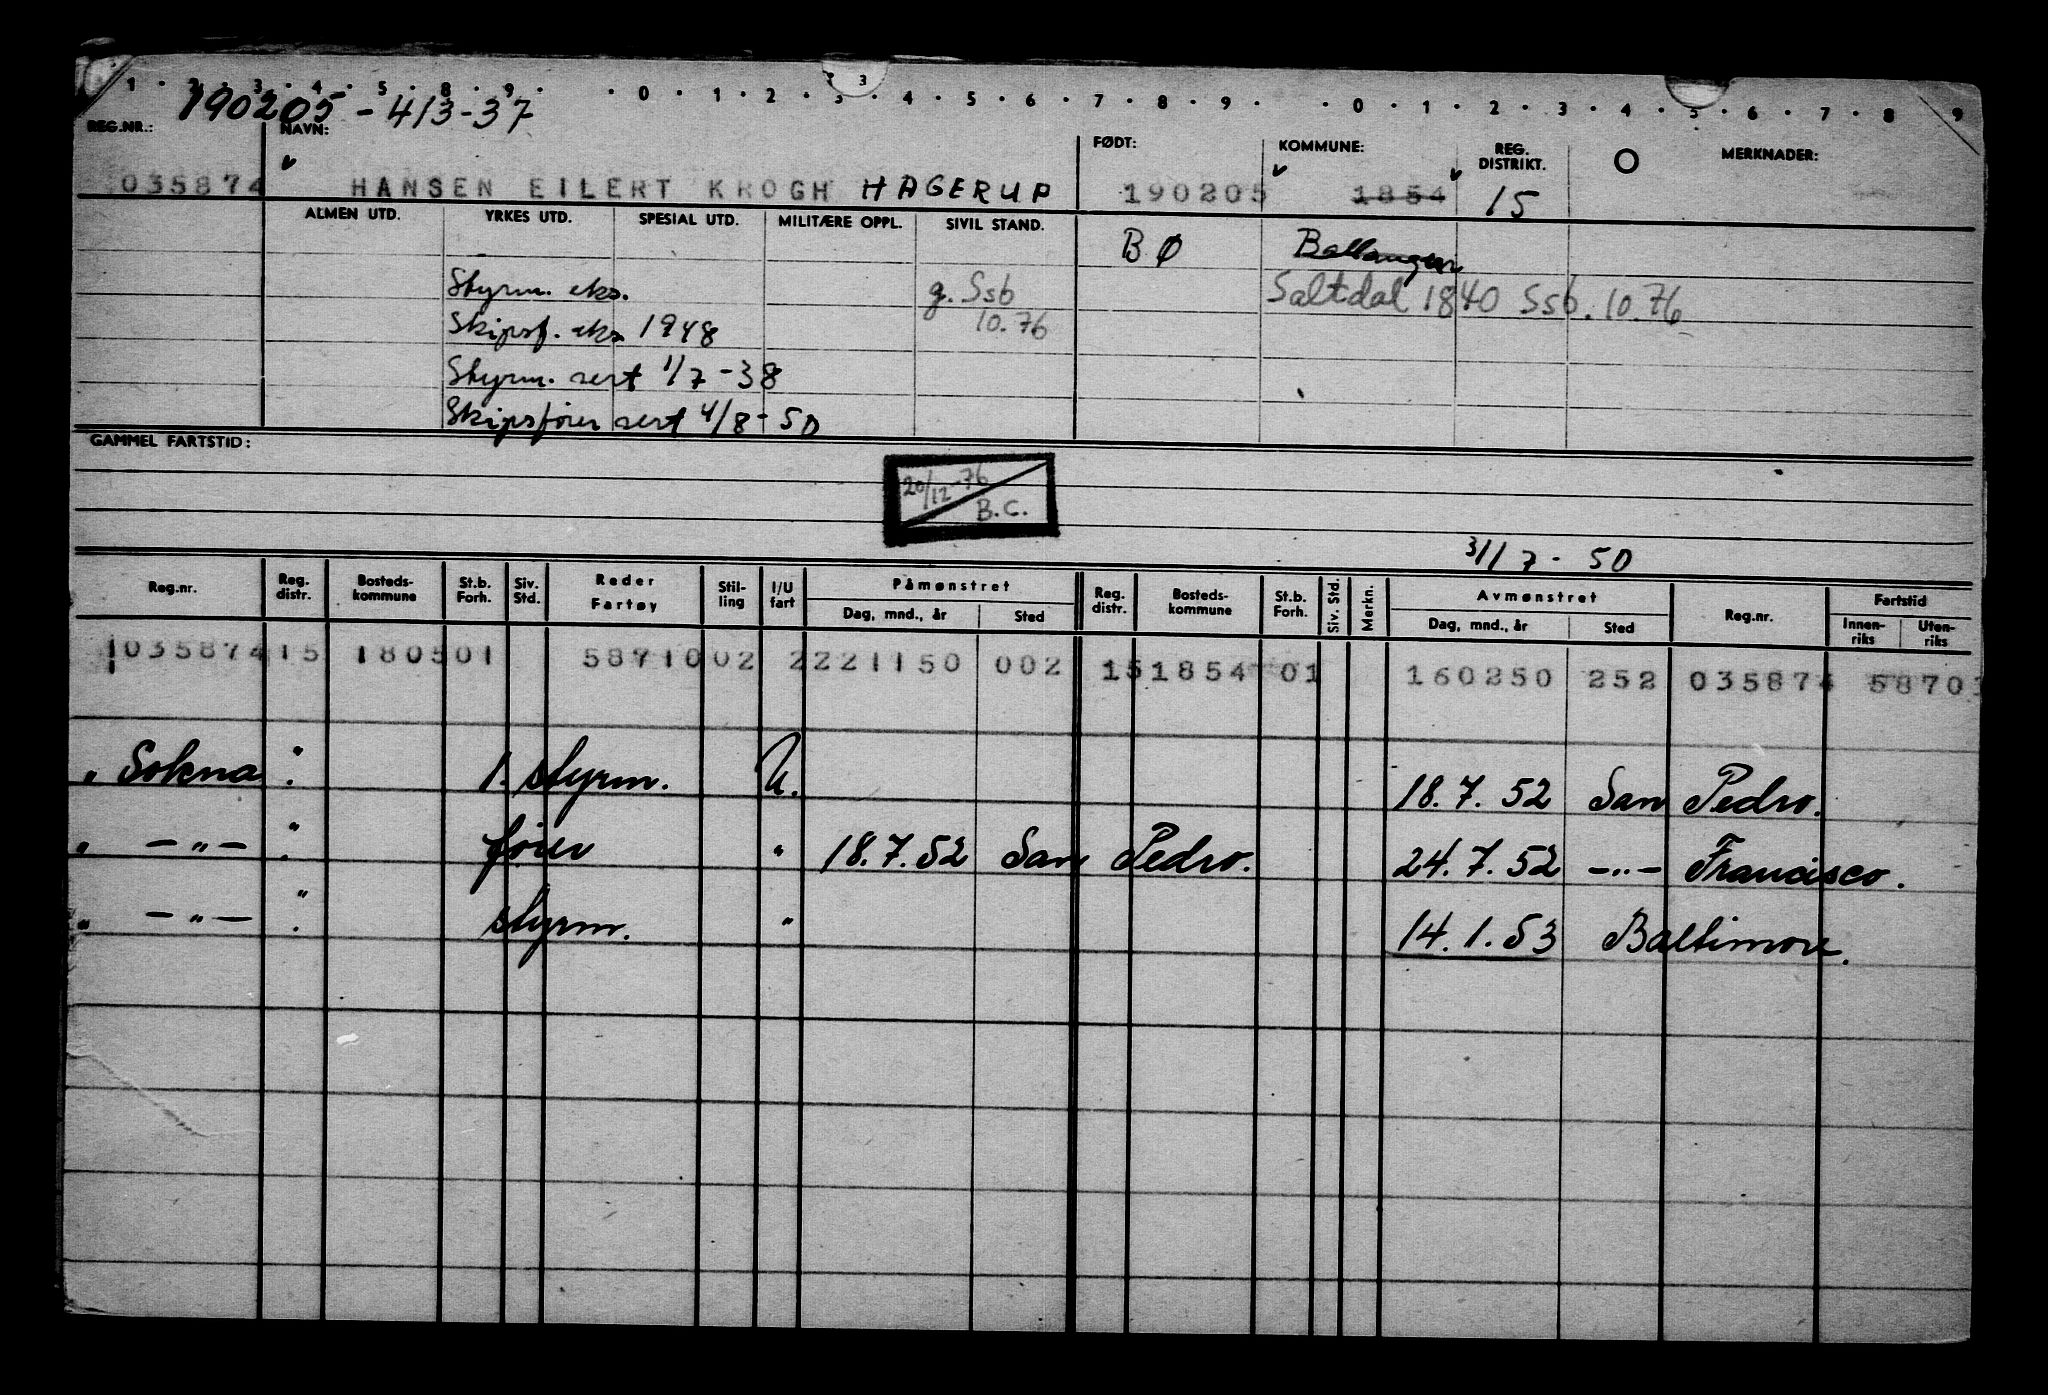 1 · 2 · 3 · 4 · 5 · 8 · 9 · · 0 · 1 · 2 · 3 · 4 · 5 · 6 · 7 · 8 · 9 · · 0 · 1 · 2 · 3 · 4 · 5 · 6 · 7 · 8 · 9
3
190205 - 413-37
REG.NR.: NAVN: FØDT: KOMMUNE: REG. DISTRIKT. O MERKNADER:
035874 HANSEN EILERT KROGH HAGERUP 190205 1854 15
ALMEN UTD. YRKES UTD. SPESIAL UTD. MILITÆRE OPPL. SIVIL STAND.
BØ Ballangen
Styrm. eks. g. Ssb Saltdal 1840 Ssb. 10.76
Skipsf. eks. 1948 10.76
Styrm. sert 1/7-38
Skipsfører sert 4/8-50
GAMMEL FARTSTID:
20/12-76
B.C.
31/7-50
Reg.nr. Reg. distr. Bosteds- kommune St.b. Forh. Siv. Std. Reder Fartøy Stil- ling I/U fart Påmønstret Reg. distr. Bosteds- kommune St.b. Forh. Siv. Std. Merkn. Avmønstret Reg.nr. Fartstid
Dag, mnd., år Sted Dag, mnd., år Sted Innen- riks Uten- riks
1035874 15 1805 01 58710 02 2 221150 002 15 1854 01 160250 252 035874 58701
" Sokna : 1. styrm. U. 18.7.52 San Pedro.
" —"— : fører " 18.7.52 San Pedro. 24.7.52 —"— Francisco.
" —"— : styrm. " 14.1.53 Baltimore.